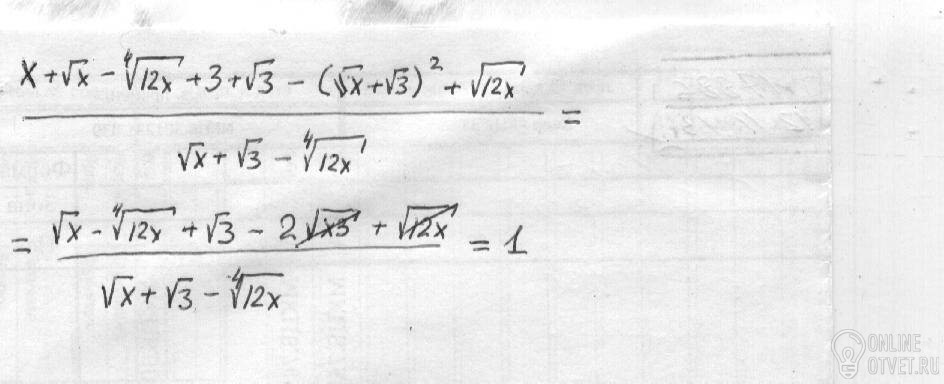 x + √x - ∜12x + 3 + √3 - (√x + √3)² + √12x
=
√x + √3 - ∜12x
= √x - ∜12x + √3 - 2√x3 + √12x = 1
√x + √3 - ∜12x
ONLINE
OTVET.RU